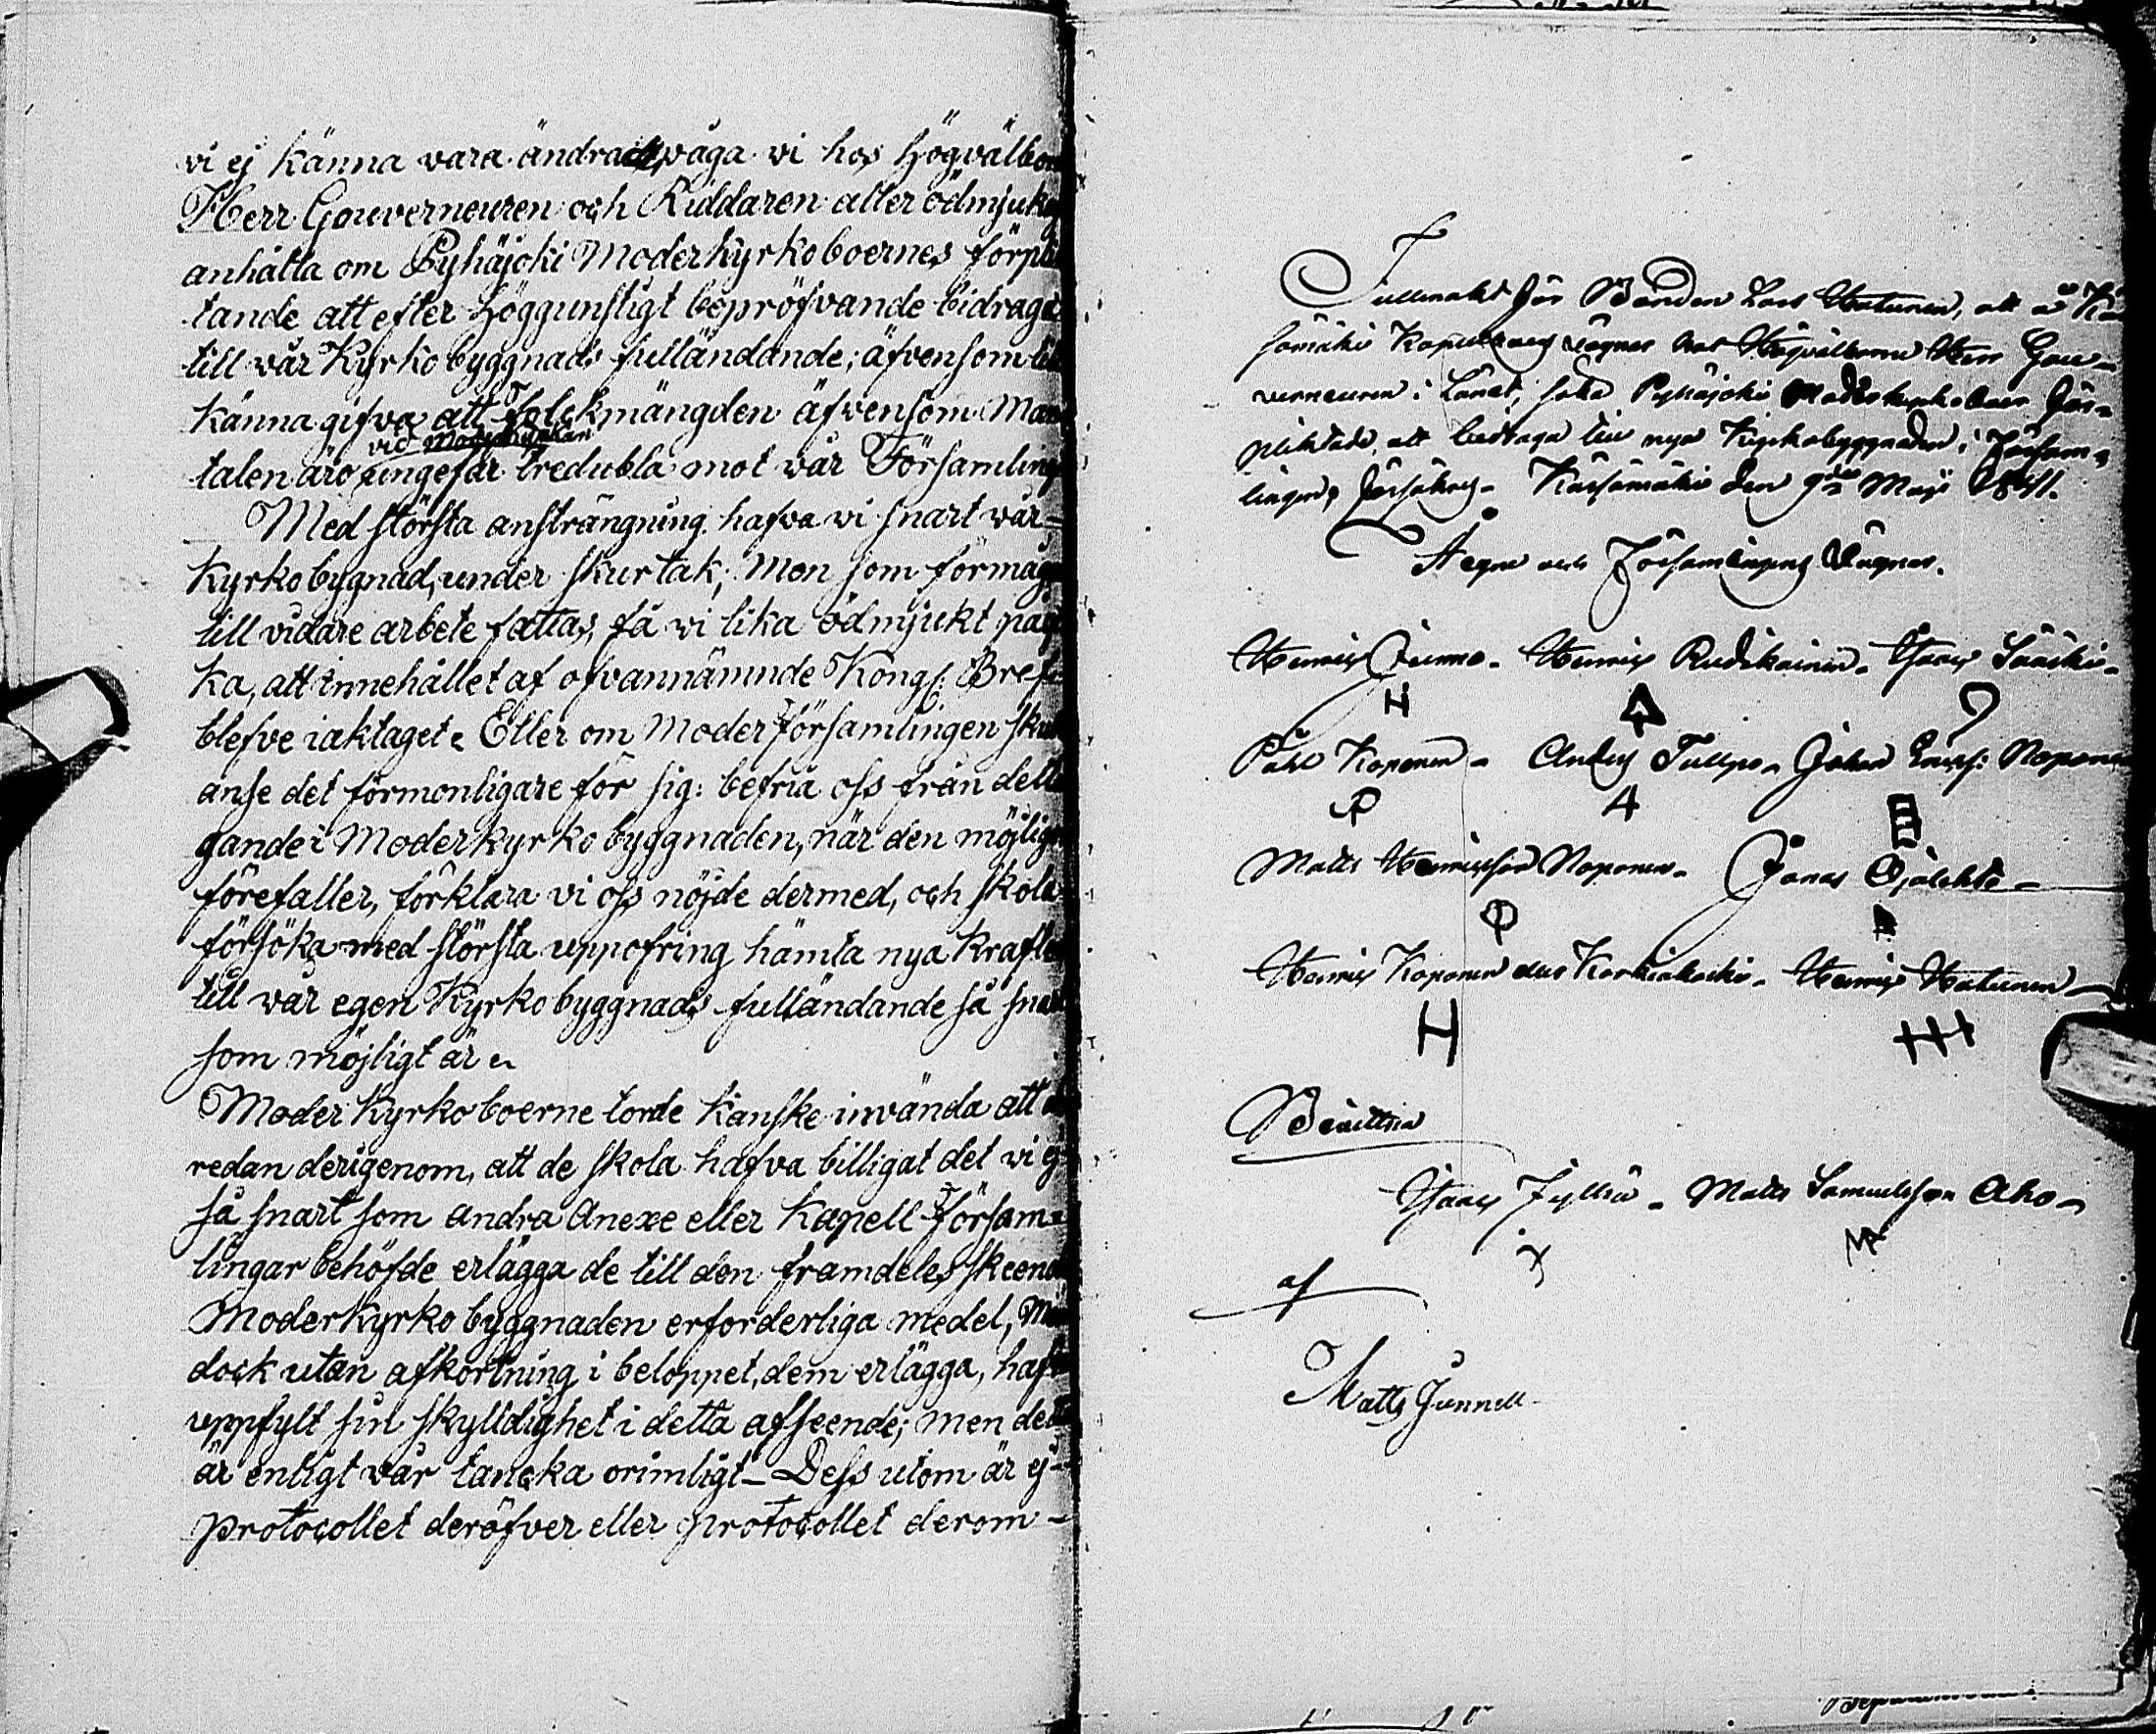 vi ej känna vara ändradt, våga vi hos Högvälborn
Herr Gouverneuren och Riddaren aller ödmjukas
anhålla om Pyhäjoki Moderkyrkoboernes förplik
tande att efter höggunstigt bepröfvande bidraga
till vår Kyrkobyggnads fulländande; äfvensom till
känna gifva att folckmängden äfvensom Man
vid Moderkyrkan
talen äro ungefär tredubla mot vår Församling
Med största ansträngning hafva vi snart vår
Kyrkobygnad, under skurtak; Men som förmåga
till vidare arbete fattas, få vi lika ödmjukt påyr
ka, att innehållet af ofvannämnde Kongl: Bref
blefve iaktaget. Eller om Moderförsamlingen skul
anse det förmonligare för sig: befria oss från delta
gande i Moderkyrko byggnaden, när den möjligen
förefaller, förklara vi oss nöjde dermed, och skola
försöka med största uppofring hämta nya krafter
till vår egen Kyrkobyggnads fulländande så snart
som möjligt är.
Moder Kyrkoboerne torde kanske invända att de
redan derigenom, att de skola hafva billigat det vi ej
så snart som andra Anexe eller Kapell Försam-
lingar behöfde erlägga de till den framdeles skeend
Moderkyrko byggnaden erforderliga medel, Men
dock utan afkortning i beloppet, dem erlägga, hafva
uppfylt sin skylldighet i detta afseende; men detta
är enligt vår tancka orimligt - Dess utom är ej
protocollet deröfver eller protocollet derom -
Fullmakt för Bonden Lars Hatunen, att å Kär
sämäki Kapellboers vägnar hos Högvälborne Herr Gou-
verneuren i Länet, söka Pyhäjoki Moderkyrkoboer för-
pliktade, att bidraga till nya Kyrkobyggnaden i Försam-
lingen, försäkras. Kärsämäki den 9de Maji 1841.
Å egne och Församlingens Vägnar.
Henric Junno - Henric Rudikainen - Isaac Sääski -
H
Påhl Koponen - Anders Tullpo - Johan Henricss: Noponen
P 4
Matts Henricsson Noponen - Jonas Ojalehto -
Henric Koponen eller Karkiakoski - Henric Hatunen -
H
Bevittna
Isaac Jylhä - Matts Samuelsson Aho -
af
Matts Junnell